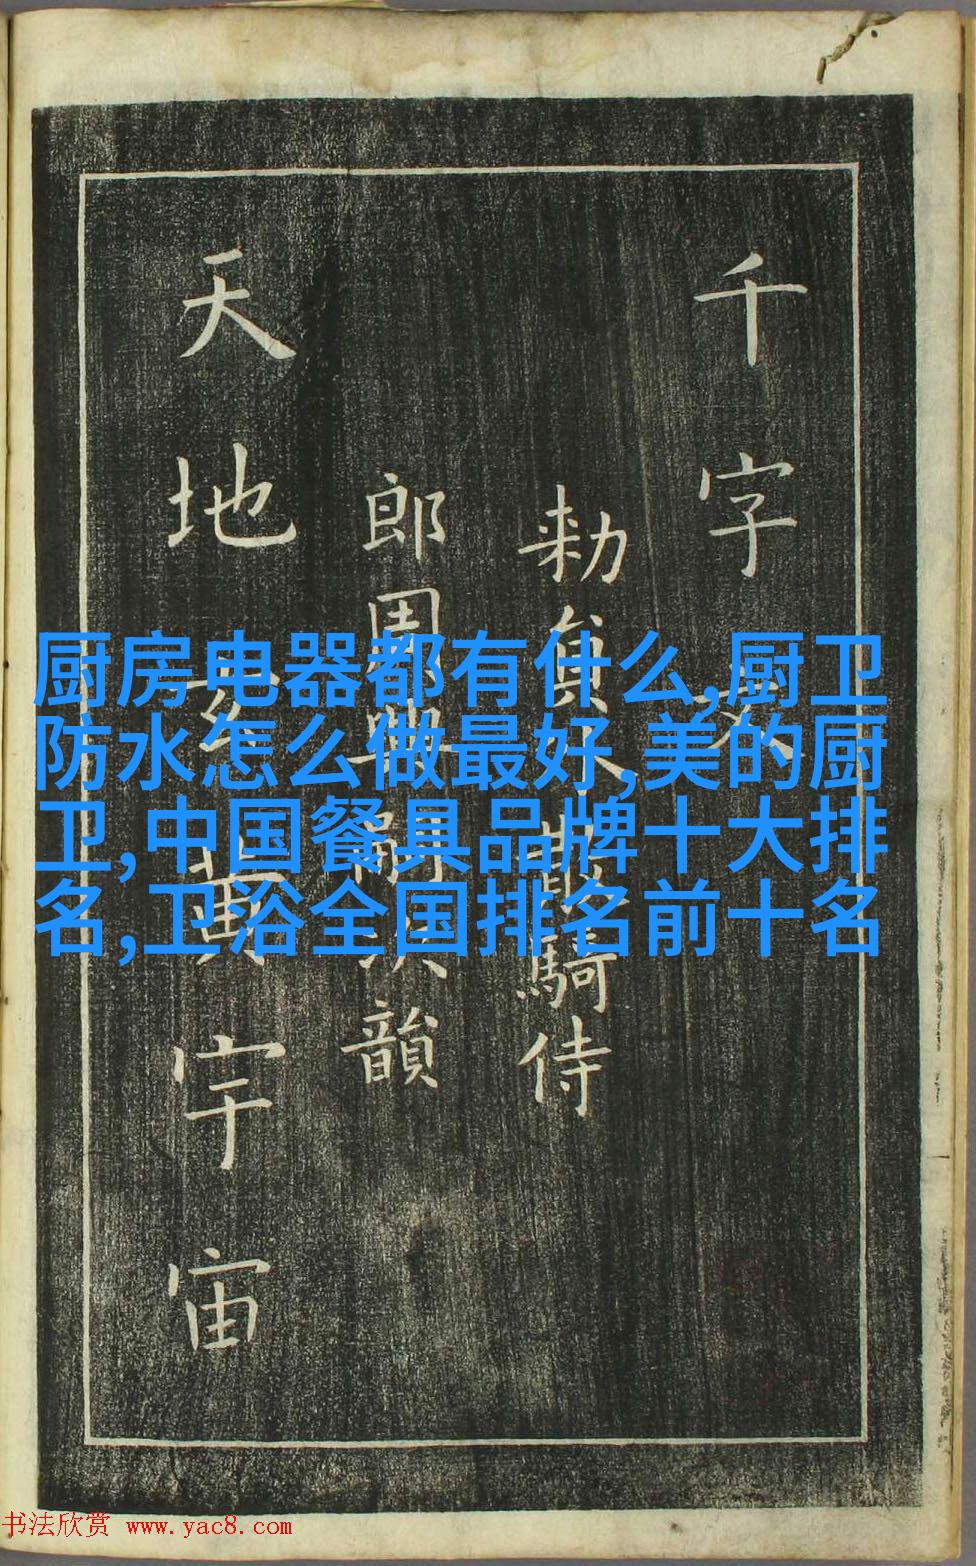 千字文
勑貟外散騎侍
郎周興嗣次韻
天地玄黄宇宙
厨房电器都有什么,厨卫
防水怎么做最好,美的厨
卫,中国餐具品牌十大排
名,卫浴全国排名前十名
书法欣赏 www.yac8.com